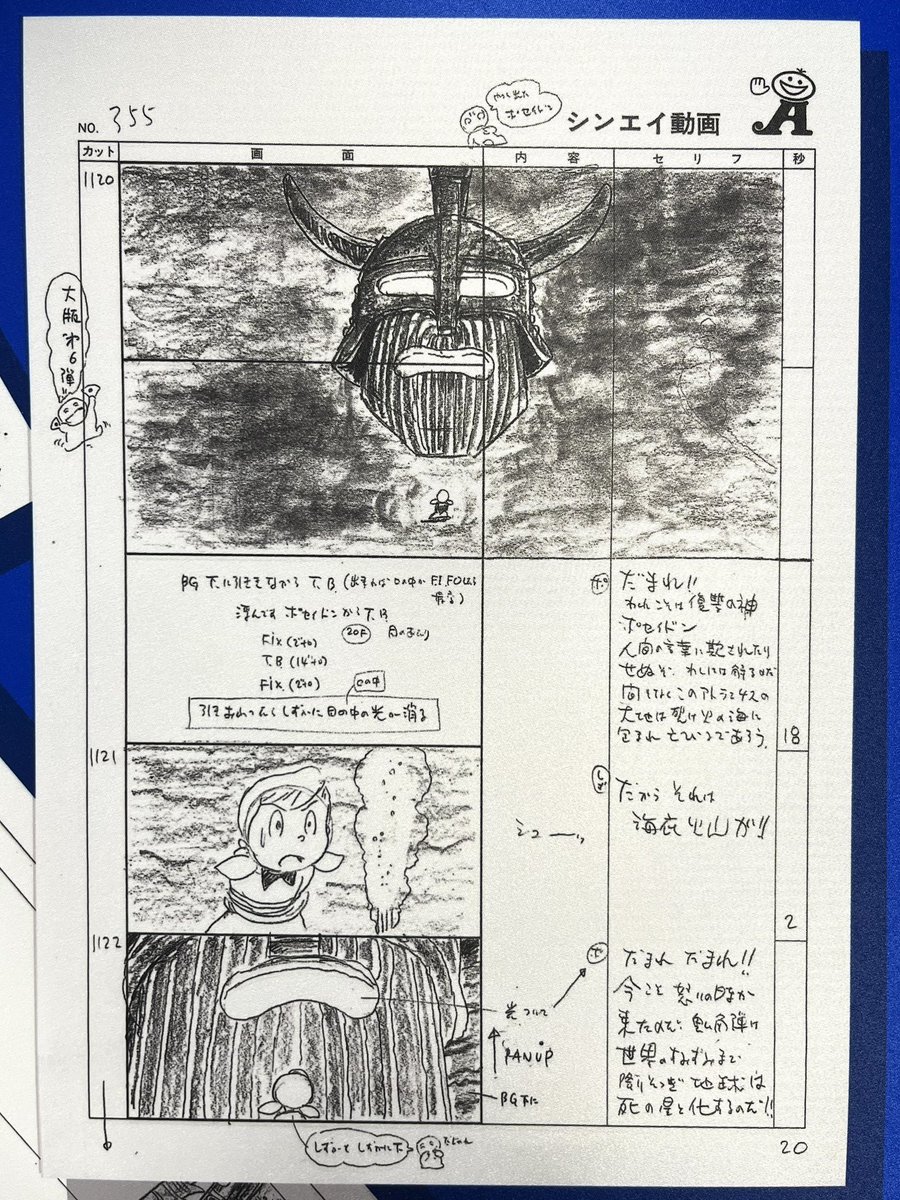 NO. 355
やっと出た
ポセイドン
シンエイ動画
カット
画面
内容
セリフ
秒
1120
大版
オ6弾!!
BG 下に引きをながら T.B.
浮んでるポセイドンからT.B
Fix (2+0)
20F
目のあたり
T.B (14+0)
Fix (2+0)
口の中
しずかに目の中の光が消る
ポ
だまれ!!
われこそは復讐の神
ポセイドン
人間の言葉に欺されたり
せぬぞ、わしには解るのだ
間もなくこのアトランチスの
大地は裂け火の海に
包まれ亡びるであろう。
18
1121
しず
だから それは
海底火山が!!
シューッ
2
1122
ポ
だまれ だまれ!!
今こそ怒りの時が
来たのだ!
世界のすみずみまで
降りそそぎ 地球は
死の星と化するのだ!!
光っている
PAN UP
BG 下に
20